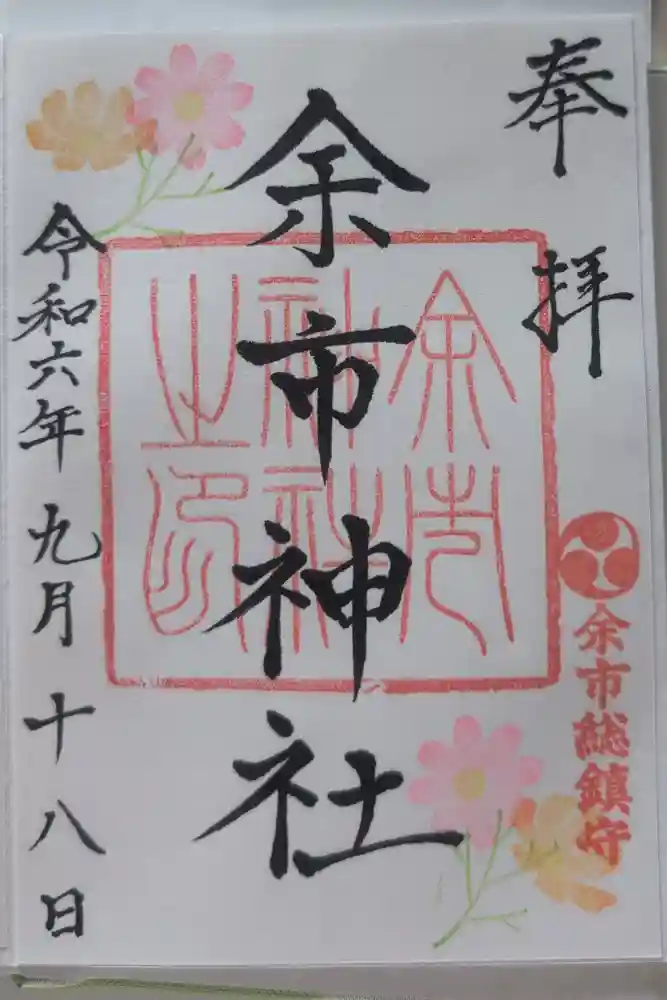 奉拝
余市総鎮守
余市神社
余市神社之印
令和六年九月十八日